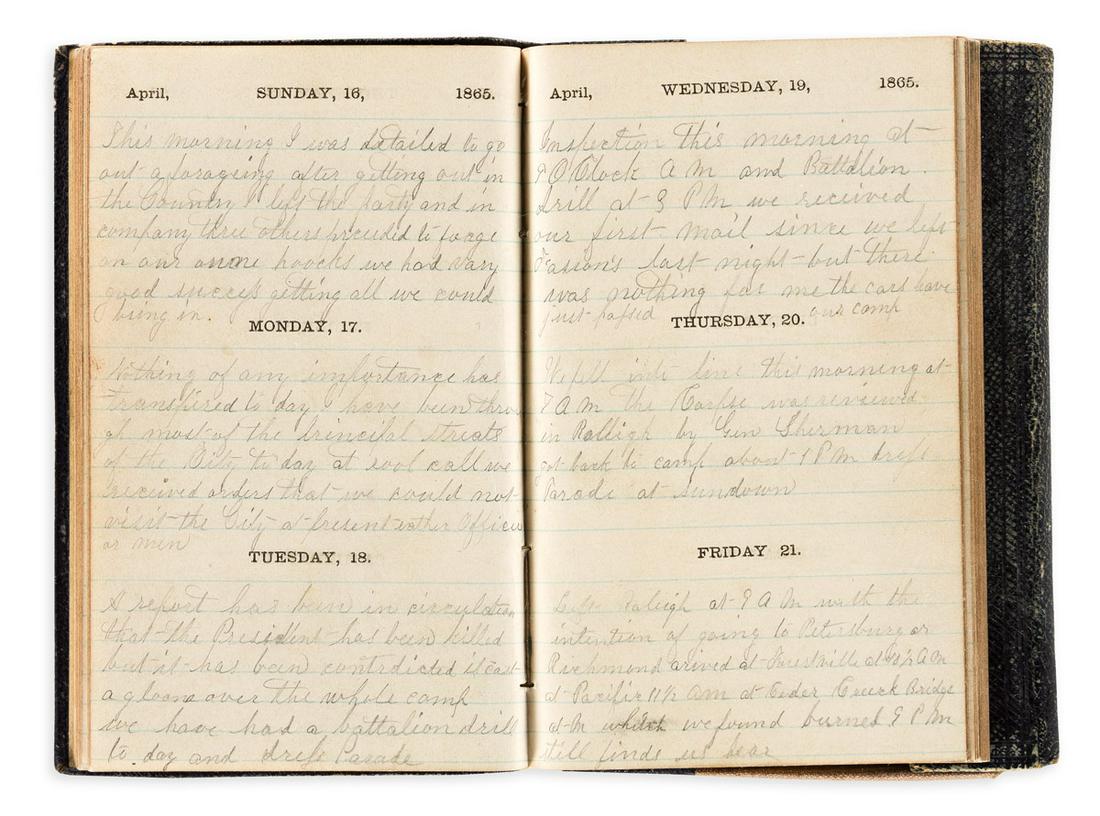 April, SUNDAY, 16, 1865.
This morning I was detailed to go
out a forageing after getting out in
the Country I left the party and in
company three others proceeded to forage
on our own hoocks we had vary
good success getting all we could
bring in.
MONDAY, 17.
Nothing of any importance has
transpired to day I have been throu
gh most of the principal streats
of the City to day at rool call we
received orders that we could not
visit the City at present either Officers
or men
TUESDAY, 18.
A report has been in circulation
that the President has been killed
but it has been contridicted it cast
a gloom over the whole camp
we have had a battalion drill
to day and dress Parade
April, WEDNESDAY, 19, 1865.
Inspection this morning at
9 O'Clock A M and Battalion
drill at 3 P M we received
our first mail since we left
Faison's last night but there
was nothing for me the cars have
just passed our camp
THURSDAY, 20.
We fell into line this morning at
7 A M the Corpse was reviewed
in Raleigh by Gen Sherman
got back to camp about 1 P M dress
Parade at sundown
FRIDAY 21.
Left Raleigh at 9 A M with the
intention of going to Petersburg or
Richmond arived at Forestville at A M
at Pacific 11½ A M at Ceder Creeck Bridge
at M which we found burned 9 P M
still finds us hear